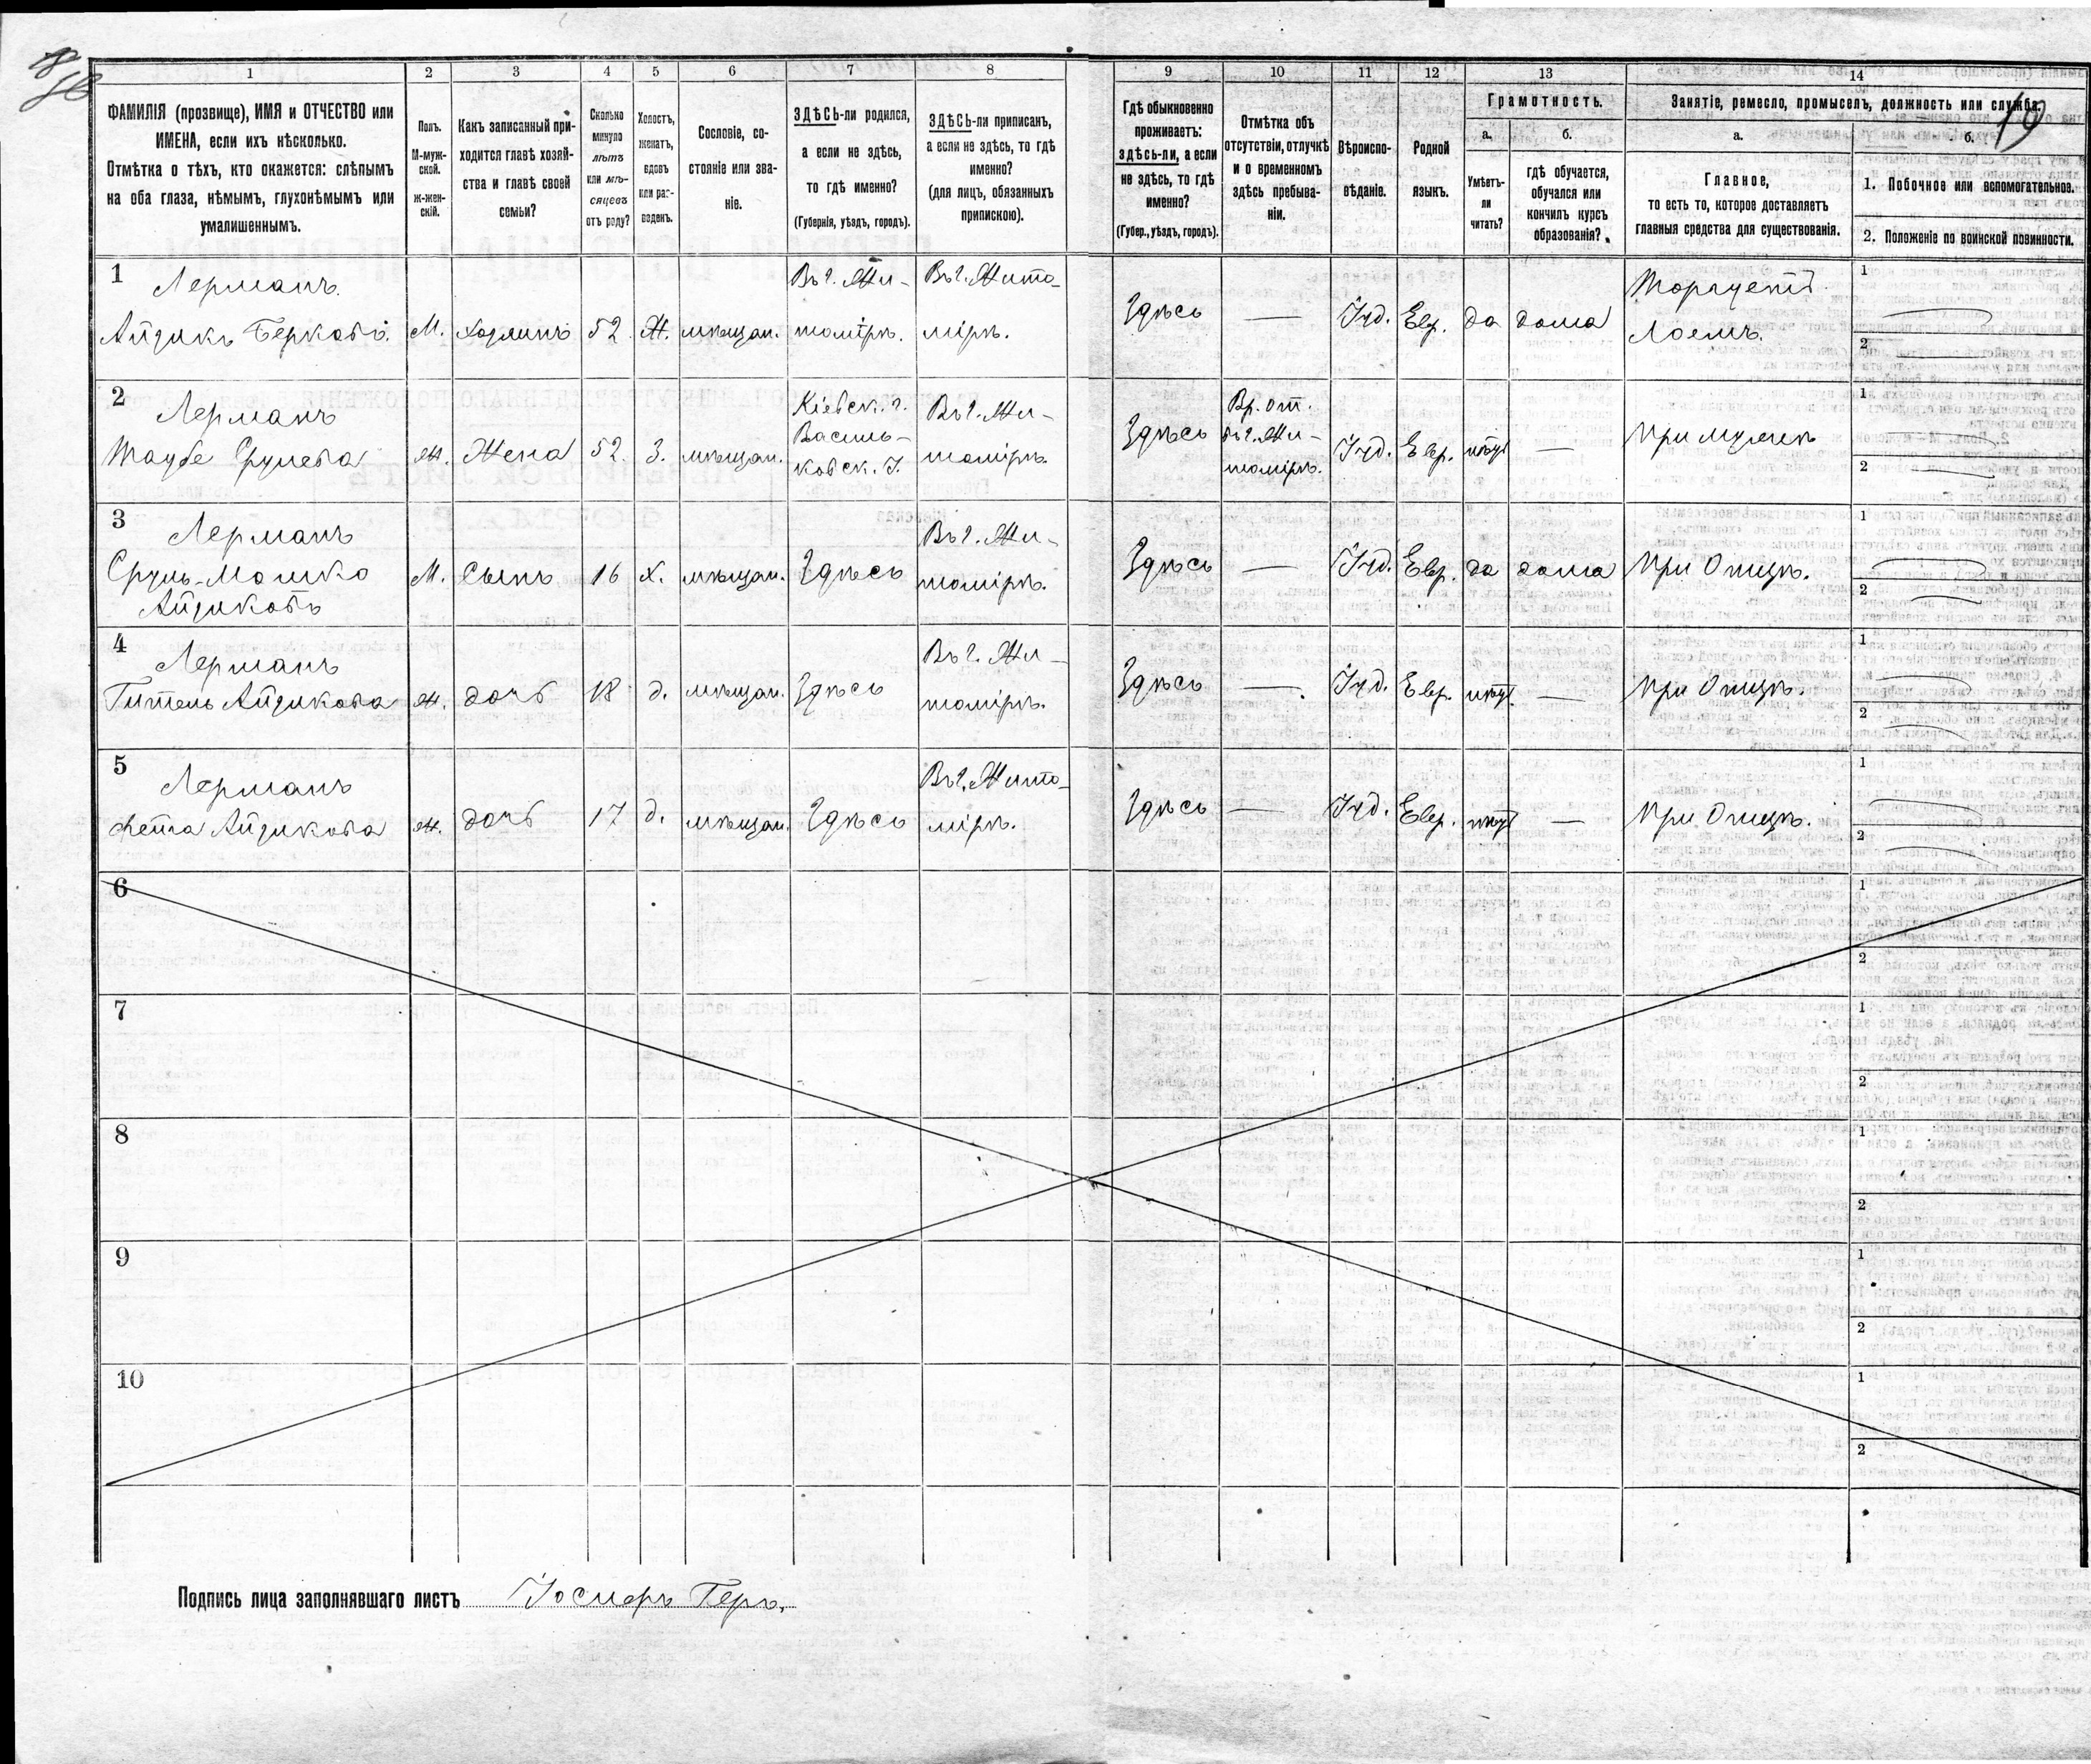 1
2
3
4
5
6
7
8
9
10
11
12
13
14
19
ФАМИЛІЯ (прозвище), ИМЯ и ОТЧЕСТВО или
ИМЕНА, если ихъ нѣсколько.
Отмѣтка о тѣхъ, кто окажется: слѣпымъ
на оба глаза, нѣмымъ, глухонѣмымъ или
умалишеннымъ.
Полъ.
М-муж-
ской.
ж-жен-
скій.
Какъ записанный при-
ходится главѣ хозяй-
ства и главѣ своей
семьи?
Сколько
минуло
лѣтъ
или мѣ-
сяцевъ
отъ роду?
Холостъ,
женатъ,
вдовъ
или раз-
веденъ.
Сословіе, со-
стояніе или зва-
ніе.
ЗДѢСЬ-ли родился,
а если не здѣсь,
то гдѣ именно?
(Губернія, уѣздъ, городъ).
ЗДѢСЬ-ли приписанъ,
а если не здѣсь, то гдѣ
именно?
(для лицъ, обязанныхъ
припискою).
Гдѣ обыкновенно
проживаетъ:
здѣсь-ли, а если
не здѣсь, то гдѣ
именно?
(Губер., уѣздъ, городъ).
Отмѣтка объ
отсутствіи, отлучкѣ
и о временномъ
здѣсь пребыва-
ніи.
Вѣроиспо-
вѣданіе.
Родной
языкъ.
Грамотность.
а.
б.
Умѣетъ-
ли
читать?
гдѣ обучается,
обучался или
кончилъ курсъ
образованія?
Занятіе, ремесло, промыселъ, должность или служба.
а.
б.
Главное,
то есть то, которое доставляетъ
главныя средства для существованія.
1. Побочное или вспомогательное.
2. Положеніе по воинской повинности.
1
Лерманъ
Айзикъ Берковъ.
М.
Хозяинъ
52
Ж.
мѣщан.
Въ г. Жи-
томірѣ.
Въ г. Жито-
мірѣ.
Здѣсь
—
Іуд.
Евр.
да
дома
Торгуетъ
Лоемъ.
1
2
2
Лерманъ
Таубе Срулева
ж.
Жена
52.
З.
мѣщан.
Кіевск. г.
Василь-
ковск. У.
Въ г. Жи-
томірѣ.
Здѣсь
Вр. от.
въ г. Жи-
томірѣ.
Іуд.
Евр.
нѣтъ
—
при мужѣ
1
2
3
Лерманъ
Сруль-Мошко
Айзиковъ
М.
Сынъ
16
Х.
мѣщан.
Здѣсь
Въ г. Жи-
томірѣ.
Здѣсь
—
Іуд.
Евр.
да
дома
при Отцѣ.
1
2
4
Лерманъ
Гитель Айзикова
ж.
дочь
18
д.
мѣщан.
Здѣсь
Въ г. Жи-
томірѣ.
Здѣсь
—.
Іуд.
Евр.
нѣт.
—
при Отцѣ.
1
2
5
Лерманъ
Фейга Айзикова
ж.
дочь
17
д.
мѣщан.
Здѣсь
Въ г. Жито-
мірѣ.
Здѣсь
—
Іуд.
Евр.
нѣтъ
—
при Отцѣ.
1
2
6
1
2
7
1
2
8
1
2
9
1
2
10
1
2
Подпись лица заполнявшаго листъ Іосифъ Геръ.